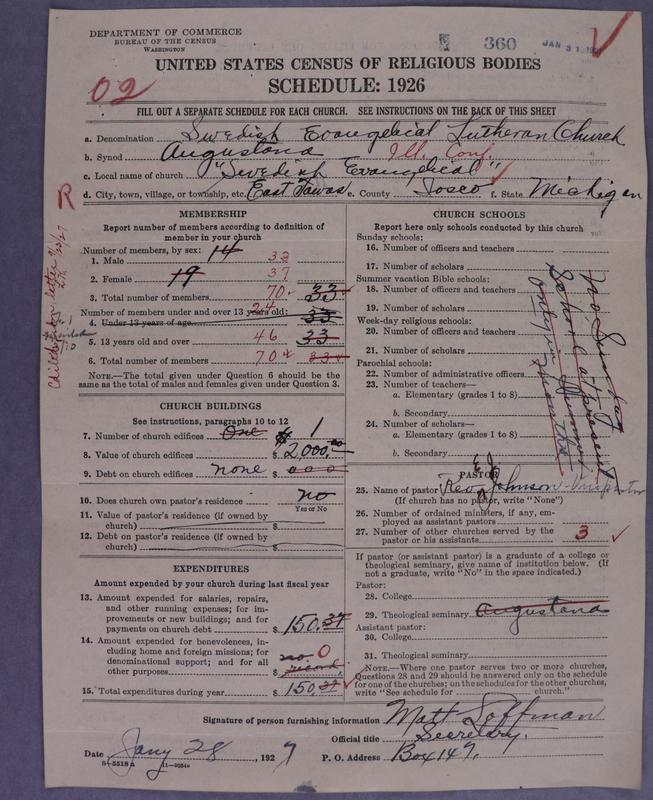 DEPARTMENT OF COMMERCE
BUREAU OF THE CENSUS
WASHINGTON
360
JAN 31
UNITED STATES CENSUS OF RELIGIOUS BODIES
SCHEDULE: 1926
02
FILL OUT A SEPARATE SCHEDULE FOR EACH CHURCH. SEE INSTRUCTIONS ON THE BACK OF THIS SHEET
a. Denomination Swedish Evangelical Lutheran Church
b. Synod Augustana Ill. Conf.
c. Local name of church "Swedish Evangelical"
d. City, town, village, or township, etc. East Tawas e. County Iosco f. State Michigan
R
MEMBERSHIP
Report number of members according to definition of
member in your church
Number of members, by sex: 14
1. Male 33
2. Female 19 37
3. Total number of members 70 33
Number of members under and over 13 years old: 24
4. Under 13 years of age 33
5. 13 years old and over 46 33
6. Total number of members 70
NOTE.—The total given under Question 6 should be
same as the total of males and females given under Question 3.
CHURCH BUILDINGS
See instructions, paragraphs 10 to 12
7. Number of church edifices One 1
8. Value of church edifices $ 2,000.00
9. Debt on church edifices none $ 000
10. Does church own pastor's residence no
Yes or No
11. Value of pastor's residence (if owned by
church) $
12. Debt on pastor's residence (if owned by
church) $
EXPENDITURES
Amount expended by your church during last fiscal year
13. Amount expended for salaries, repairs,
and other running expenses; for im-
provements or new buildings; and for
payments on church debt $ 150.37
14. Amount expended for benevolences,
including home and foreign missions; for
denominational support; and for all
other purposes no record. 0 $
15. Total expenditures during year $ 150.37
CHURCH SCHOOLS
Report here only schools conducted by this church
Sunday schools:
16. Number of officers and teachers
17. Number of scholars
Summer vacation Bible schools:
18. Number of officers and teachers
19. Number of scholars
Week-day religious schools:
20. Number of officers and teachers
21. Number of scholars
Parochial schools:
22. Number of administrative officers
23. Number of teachers—
a. Elementary (grades 1 to 8)
b. Secondary
24. Number of scholars—
a. Elementary (grades 1 to 8)
b. Secondary
No Sunday
School at present
only in Summer
months
PASTOR
25. Name of pastor Rev Johnson
(If church has no pastor, write "None")
26. Number of ordained ministers, if any, em-
ployed as assistant pastors
27. Number of other churches served by the
pastor or his assistants 3
If pastor (or assistant pastor) is a graduate of a college or
theological seminary, give name of institution below. (If
not a graduate, write "No" in the space indicated.)
Pastor:
28. College
29. Theological seminary Augustana
Assistant pastor:
30. College
31. Theological seminary
NOTE.—Where one pastor serves two or more churches,
Questions 28 and 29 should be answered only on the schedule
for one of the churches; on the schedules for the other churches,
write "See schedule for church."
Signature of person furnishing information Matt Loffman
Official title Secretary.
Date Jany 28, 1927 P. O. Address Box 149.
8-5518a